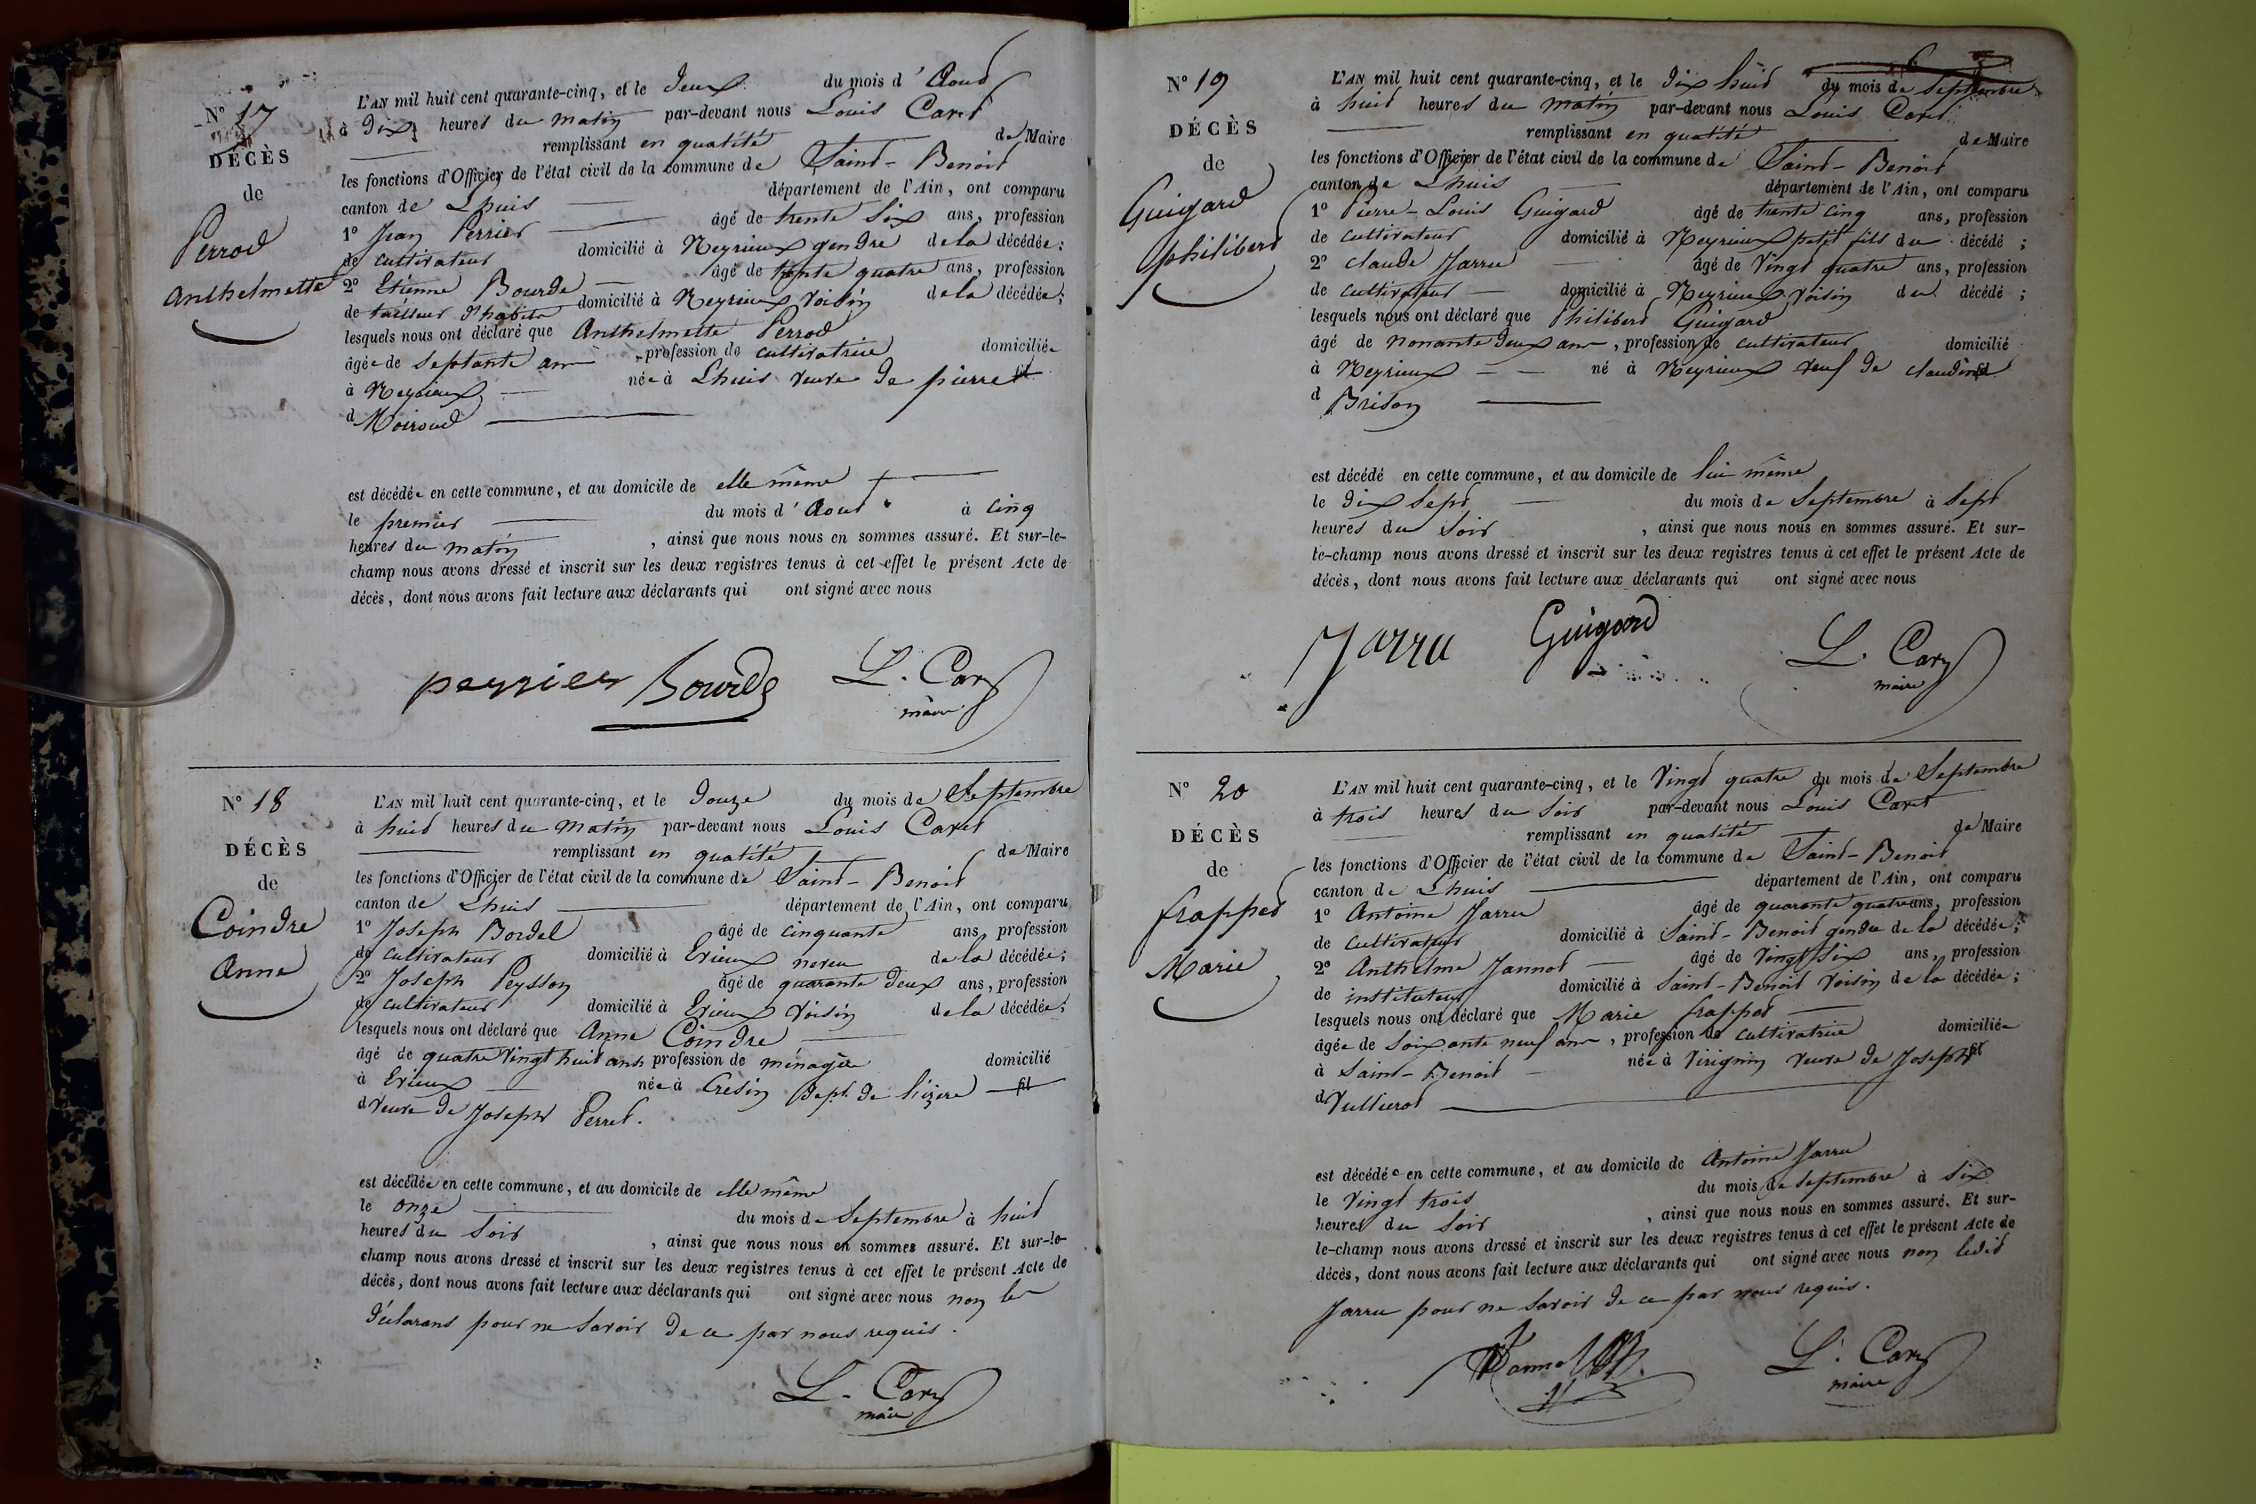 N° 17
DÉCÈS
de
Perrod
Anthelmette
L'AN mil huit cent quarante-cinq, et le deux du mois d'Aoud
à dix heures du matin par-devant nous Louis Caret
remplissant en qualité de Maire
les fonctions d'Officier de l'état civil de la commune de Saint-Benoit
canton de Lhuis département de l'Ain, ont comparu
1° Jean Perrier âgé de trente six ans, profession
de cultivateur domicilié à Neyrieux gendre de la décédée;
2° Etienne Bourde âgé de trente quatre ans, profession
de tailleur d'habits domicilié à Neyrieux voisin de la décédée;
lesquels nous ont déclaré que Anthelmette Perrod
âgée de septante ans, profession de cultivatrice domiciliée
à Neyrieux née à Lhuis veuve de pierre
d Moiroud
est décédée en cette commune, et au domicile de elle même
le premier du mois d'Aout à cinq
heures du matin, ainsi que nous nous en sommes assuré. Et sur-le-
champ nous avons dressé et inscrit sur les deux registres tenus à cet effet le présent Acte de
décès, dont nous avons fait lecture aux déclarants qui ont signé avec nous
perrier Bourde L. Caret
maire
N° 18
DÉCÈS
de
Coindre
Anne
L'AN mil huit cent quarante-cinq, et le douze du mois de Septembre
à huid heures du matin par-devant nous Louis Caret
remplissant en qualité de Maire
les fonctions d'Officier de l'état civil de la commune de Saint-Benoit
canton de Lhuis département de l'Ain, ont comparu
1° Joseph Bordel âgé de cinquante ans, profession
de cultivateur domicilié à Erieux neveu de la décédée;
2° Joseph Peysson âgé de quarante deux ans, profession
de cultivateur domicilié à Erieux voisin de la décédée;
lesquels nous ont déclaré que Anne Coindre
âgé de quatre vingt huit ans profession de ménagère domicilié
à Erieux née à Cresin Dept. de l'izere
d veuve de Joseph Perret.
est décédée en cette commune, et au domicile de elle même
le onze du mois de Septembre à huid
heures du soir, ainsi que nous nous en sommes assuré. Et sur-le-
champ nous avons dressé et inscrit sur les deux registres tenus à cet effet le présent Acte de
décès, dont nous avons fait lecture aux déclarants qui ont signé avec nous non les
déclarans pour ne savoir de ce par nous requis.
L. Caret
maire
N° 19
DÉCÈS
de
Guigard
philiberd
L'AN mil huit cent quarante-cinq, et le dix huid du mois de Septembre
à huid heures du matin par-devant nous Louis Caret
remplissant en qualité de Maire
les fonctions d'Officier de l'état civil de la commune de Saint-Benoit
canton de Lhuis département de l'Ain, ont comparu
1° Pierre-Louis Guigard âgé de trente cinq ans, profession
de cultivateur domicilié à Neyrieux petit fils du décédé;
2° claude Jarru âgé de vingt quatre ans, profession
de cultivateur domicilié à Neyrieux voisin du décédé;
lesquels nous ont déclaré que Philiberd Guigard
âgé de nonante deux ans, profession de cultivateur domicilié
à Neyrieux né à Neyrieux veuf de claudine
d Brison
est décédé en cette commune, et au domicile de lui même
le dix sept du mois de Septembre à sept
heures du soir, ainsi que nous nous en sommes assuré. Et sur-
le-champ nous avons dressé et inscrit sur les deux registres tenus à cet effet le présent Acte de
décès, dont nous avons fait lecture aux déclarants qui ont signé avec nous
Jarru Guigard L. Caret
maire
N° 20
DÉCÈS
de
frapped
Marie
L'AN mil huit cent quarante-cinq, et le vingt quatre du mois de Septembre
à trois heures du soir par-devant nous Louis Caret
remplissant en qualité de Maire
les fonctions d'Officier de l'état civil de la commune de Saint-Benoit
canton de Lhuis département de l'Ain, ont comparu
1° Antoine Jarru âgé de quarante quatre ans, profession
de cultivateur domicilié à Saint-Benoit gendre de la décédée;
2° Anthelme Jannot âgé de vingt six ans, profession
de instituteur domicilié à Saint-Benoit voisin de la décédée;
lesquels nous ont déclaré que Marie frapped
âgée de soixante neuf ans, profession de cultivatrice domiciliée
à Saint-Benoit née à Virignin veuve de Joseph
d Vullierod
est décédée en cette commune, et au domicile de Antoine Jarru
le vingt trois du mois de Septembre à six
heures du soir, ainsi que nous nous en sommes assuré. Et sur-
le-champ nous avons dressé et inscrit sur les deux registres tenus à cet effet le présent Acte de
décès, dont nous avons fait lecture aux déclarants qui ont signé avec nous non ledit
Jarru pour ne savoir de ce par nous requis.
Jannot L. Caret
maire